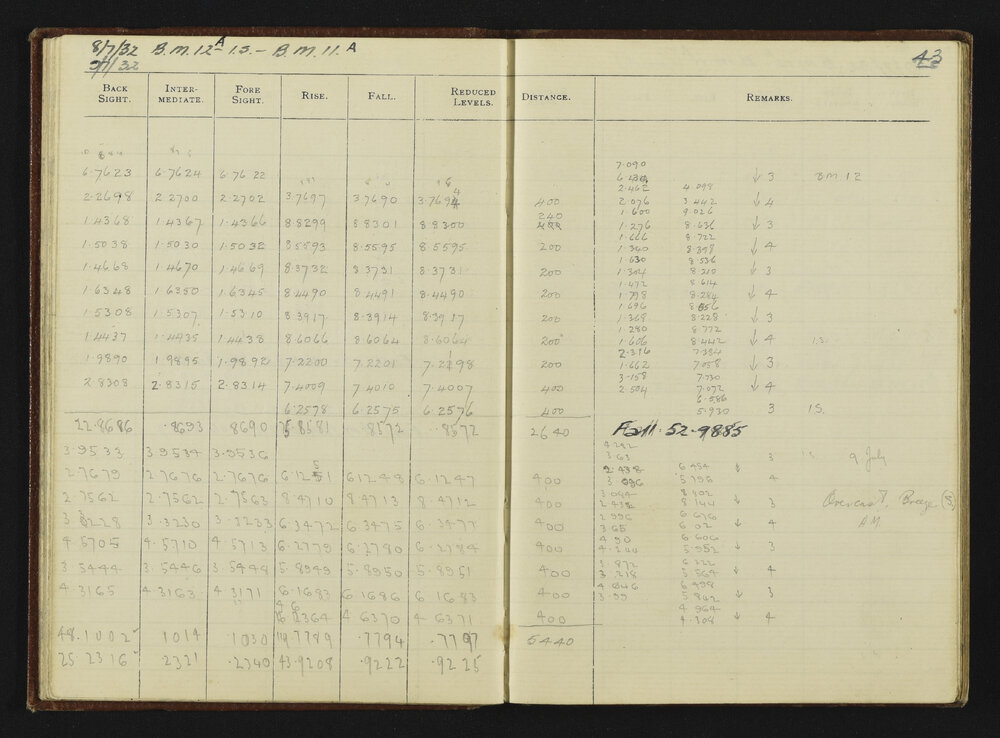 8/7/32 B.M.12A 1.S. - B.M.11.A
9/7/32
43
BACK SIGHT. INTER-MEDIATE. FORE SIGHT. RISE. FALL. REDUCED LEVELS. DISTANCE. REMARKS.
7.090
6.7623 6.7624 6.7622 ↓ 3 B.M.12
2.462 4.098
2.2698 2.2700 2.2702 3.7697 3.7690 3.7694 400 2.076 3.442 ↓ 4
240 1.600 9.026
1.4368 1.4367 1.4366 8.8299 8.8301 8.8300 1.276 8.636 ↓ 3
1.666 8.722
1.5038 1.5030 1.5032 8.5593 8.5595 8.5595 200 1.340 8.398 ↓ 4
1.630 8.536
1.4668 1.4670 1.4669 8.3732 8.3731 8.3731 200 1.304 8.210 ↓ 3
1.472 8.614
1.6348 1.6350 1.6345 8.4490 8.4491 8.4490 200 1.798 8.284 ↓ 4
1.696 8.556
1.5308 1.5307 1.5310 8.3917 8.3914 8.3917 200 1.368 8.228 ↓ 3
1.280 8.772
1.4437 1.4435 1.4438 8.6066 8.6064 8.6064 200 1.606 8.442 ↓ 4 1.S.
2.316 7.384
1.9890 1.9895 1.9892 7.2200 7.2201 7.2198 200 1.662 7.058 ↓ 3
3.158 7.730
2.8308 2.8315 2.8314 7.4009 7.4010 7.4007 400 2.504 7.072 ↓ 4
6.586
6.2578 6.2575 6.2576 400 5.930 3 1S.
22.8686 .8693 8690 75 8581 .8572 .8572 2640 Fall. 52.9885
4.282
3.9533 3.9534 3.9536 3.63 3 1S 9 July
2.438 6.454 ↓
2.7679 2.7676 2.7676 6.1251 6.1248 6.1247 400 3.096 5.796 4
3.084 8.802
2.7562 2.7562 2.7563 8.4710 8.4713 8.4712 400 2.438 8.144 ↓ 3 Overcast, Breeze (S)
2.996 6.676
3.3228 3.3230 3.3233 6.3472 6.3475 6.3477 400 3.65 6.02 ↓ 4 AM
4.90 6.606
4.5705 4.5710 4.5713 6.2779 6.2780 6.2784 400 4.240 5.952 ↓ 3
3.872 6.222
3.5444 3.5446 3.5448 5.8949 5.8950 5.8951 400 3.218 5.564 ↓ 4
4.646 6.498
4.3165 4.3163 4.3171 6.1683 6.1686 6.1683 400 3.99 5.842 ↓ 3
4.964
4.6364 4.6370 4.6371 400 4.308 ↓ 4
48.1002 1014 1030 119 7789 .7794 .7797 5440
25.2316 2321 .2340 43.9208 .9222 .9225